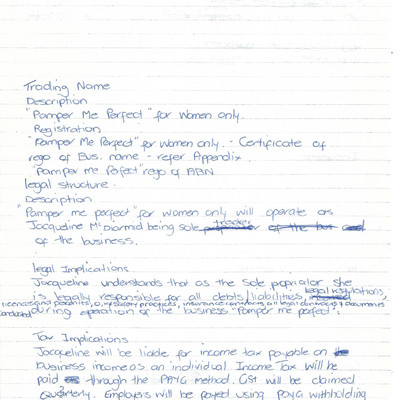 Trading Name
Description
"Pamper Me Perfect" for Women only.
Registration
"Pamper Me Perfect" for Women only. - Certificate of
rego of Bus. name - refer Appendix
"Pamper me Perfect" rego of ABN
legal structure.
Description
"Pamper me perfect" for women only will operate as
Jacqueline Mc Diarmid being sole trader
of the business.
legal Implications
Jacqueline understands that as the sole propriator she
is legally responsible for all debts/liabilities, legal
licences and
conducted during operation of the business "Pamper me perfect".
Tax Implications
Jacqueline will be liable for income tax payable on
business income as an individual. Income Tax will be
paid through the PAYG method. GST will be claimed
Quarterly. Employers will be payed using PAYG withholding